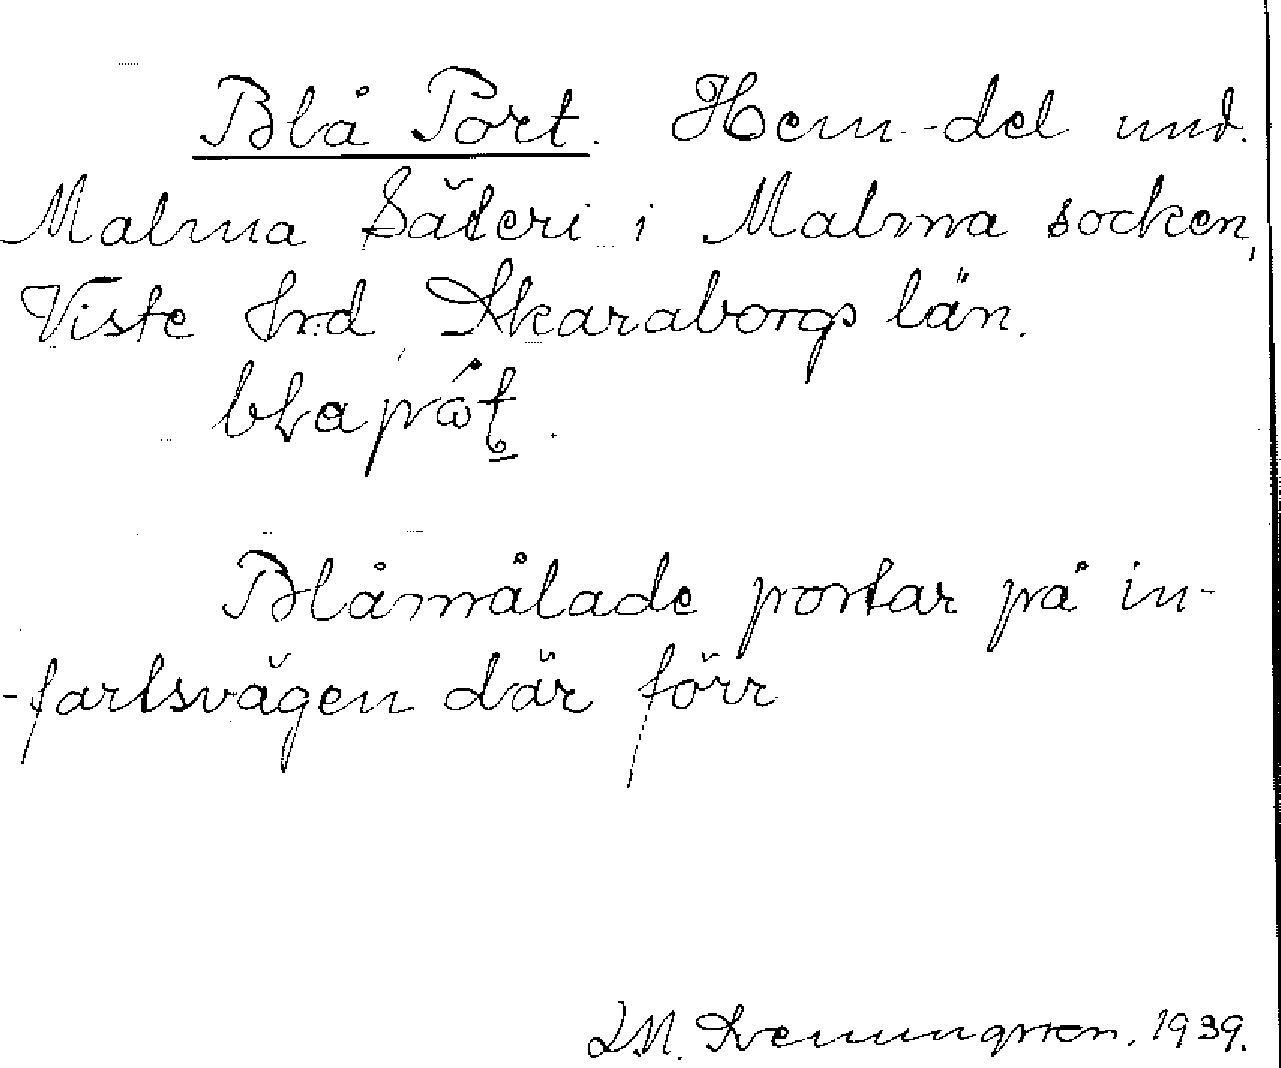 Blå Port. Hem-del und.
Malma Säteri i Malma socken,
Viste hrd, Skaraborgs län.
Blåmålade portar på in-
-fartsvägen där förr
1939.